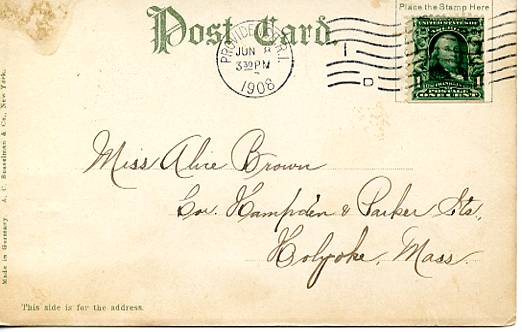 Post Card.
Place the Stamp Here
PROVIDENCE, R.I.
JUN 8
330 PM
1908
1
D
UNITED STATES
FRANKLIN
1 POSTAGE 1
ONE CENT
Miss Alice Brown
Cor. Hampden & Parker Sts,
Holyoke, Mass.
Made in Germany. A. C. Bosselman & Co., New York.
This side is for the address.